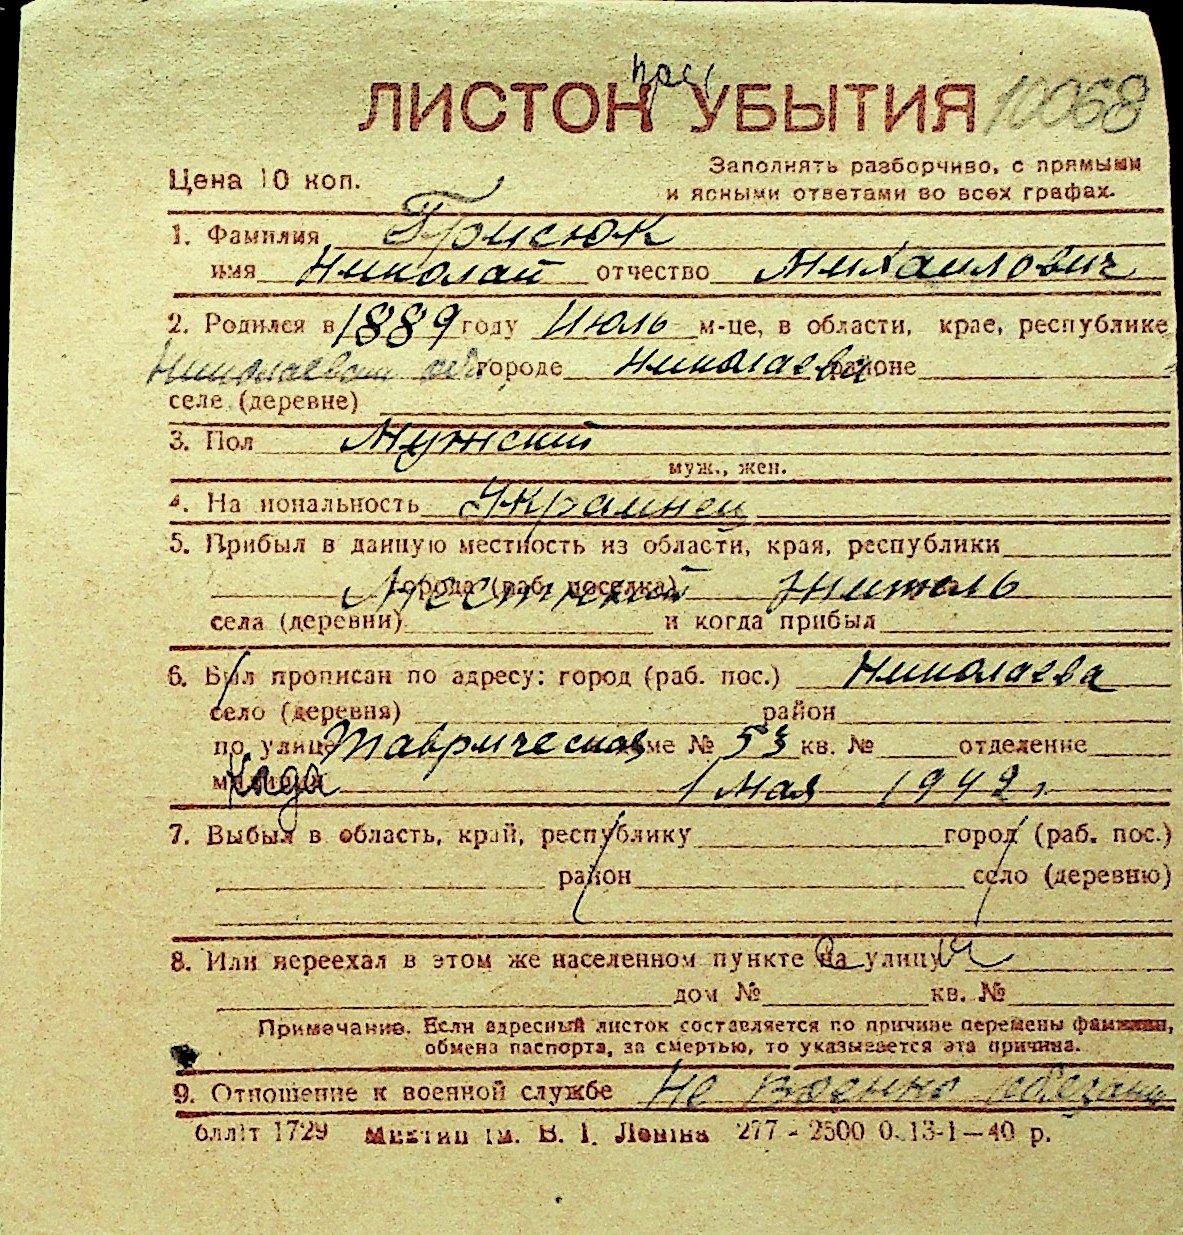 ЛИСТОК УБЫТИЯ 10068
Цена 10 коп.
Заполнять разборчиво, с прямыми
и ясными ответами во всех графах.
1. Фамилия Грисюк
имя Николай отчество Михаилович
2. Родился в 1889 году Июль м-це, в области, крае, республике
Николаевской обл. городе Николаева районе
селе (деревне)
3. Пол Мужский
муж., жен.
4. Национальность Украинец
5. Прибыл в данную местность из области, края, республики
города (раб. поселка) Местный житель
села (деревни) и когда прибыл
6. Был прописан по адресу: город (раб. пос.) Николаева
село (деревня) район
по улице Таврическая доме № 53 кв. № отделение
милиции 1 Мая 1942 г.
7. Выбыл в область, край, республику город (раб. пос.)
район село (деревню)
8. Или переехал в этом же населенном пункте на улицу
дом № кв. №
Примечание. Если адресный листок составляется по причине перемены фамилии,
обмена паспорта, за смертью, то указывается эта причина.
9. Отношение к военной службе Не военно обезаны
блліт 1729 Миктип ім. В. І. Леніна 277 - 2500 0. 13-1—40 р.